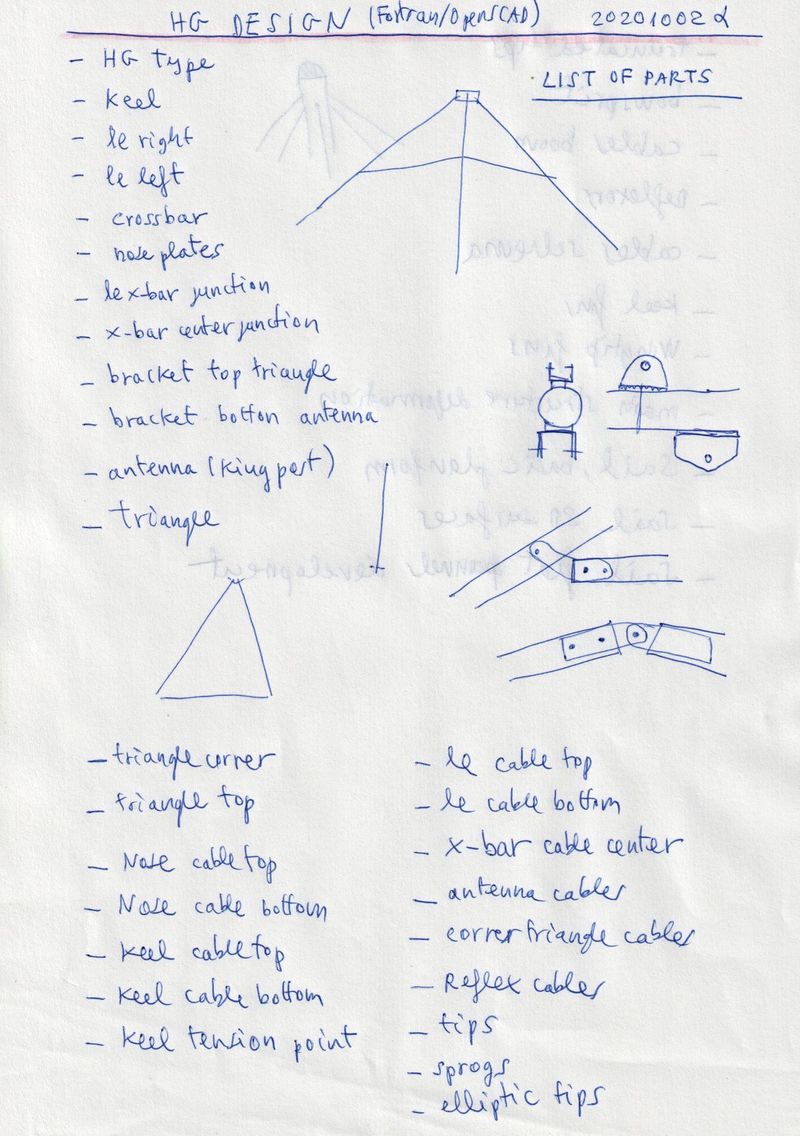 HG DESIGN (Fortran/OpenSCAD) 20201002 α
LIST OF PARTS
- HG type
- keel
- le right
- le left
- crossbar
- nose plates
- le x-bar junction
- x-bar center junction
- bracket top triangle
- bracket botton antenna
- antenna (king post)
- triangle
- triangle corner
- triangle top
- Nose cable top
- Nose cable bottom
- keel cable top
- keel cable bottom
- keel tension point
- le cable top
- le cable bottom
- x-bar cable center
- antenna cables
- corner triangle cables
- Reflex cables
- tips
- sprogs
- elliptic tips